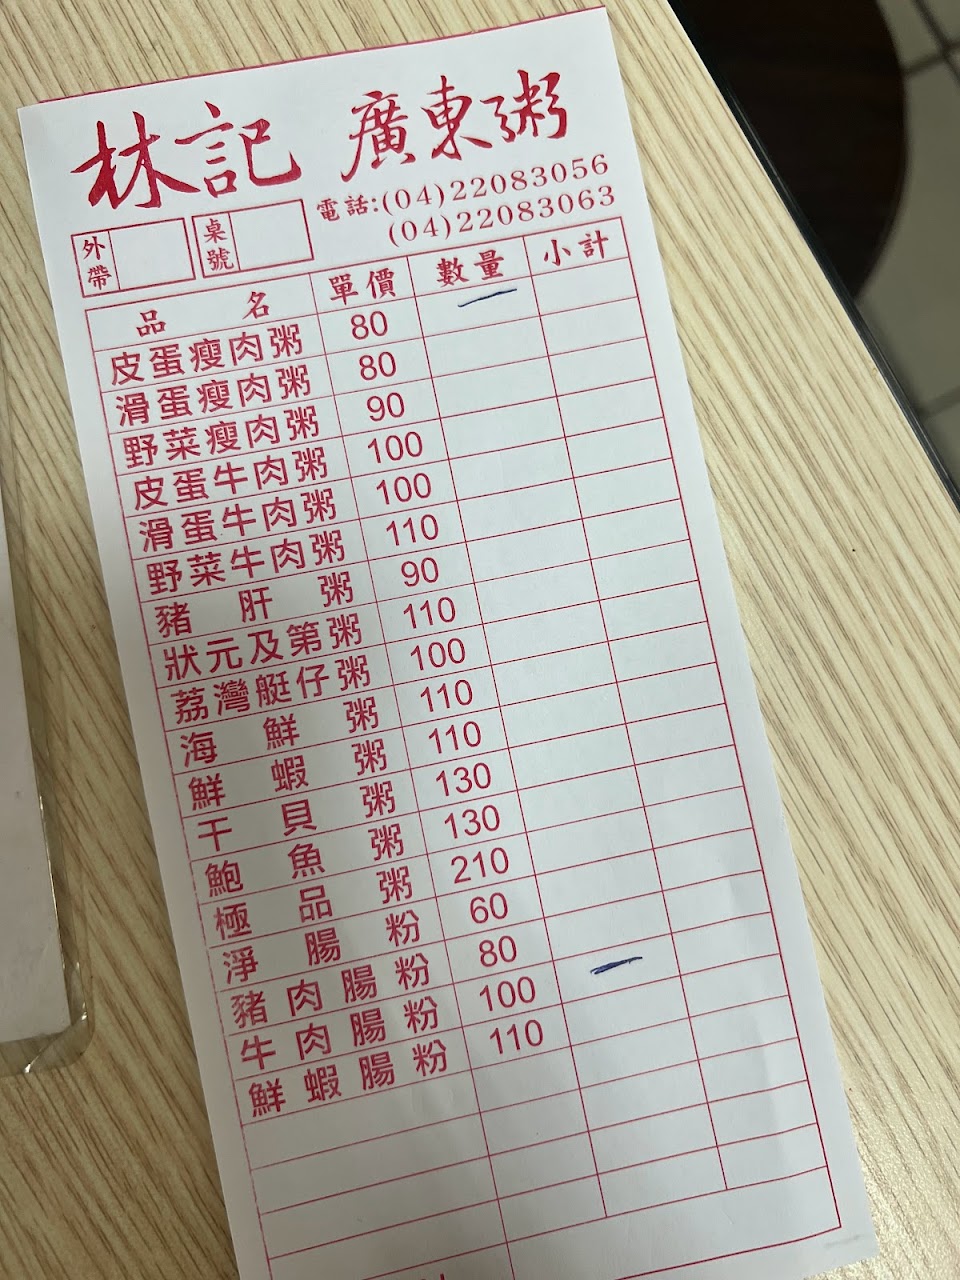 林記 廣東粥
電話:(04)22083056
(04)22083063
外帶 桌號
品名 單價 數量 小計
皮蛋瘦肉粥 80 一
滑蛋瘦肉粥 80
野菜瘦肉粥 90
皮蛋牛肉粥 100
滑蛋牛肉粥 100
野菜牛肉粥 110
豬肝粥 90
狀元及第粥 110
荔灣艇仔粥 100
海鮮粥 110
鮮蝦粥 110
干貝粥 130
鮑魚粥 130
極品粥 210
淨腸粉 60
豬肉腸粉 80
牛肉腸粉 100 一
鮮蝦腸粉 110